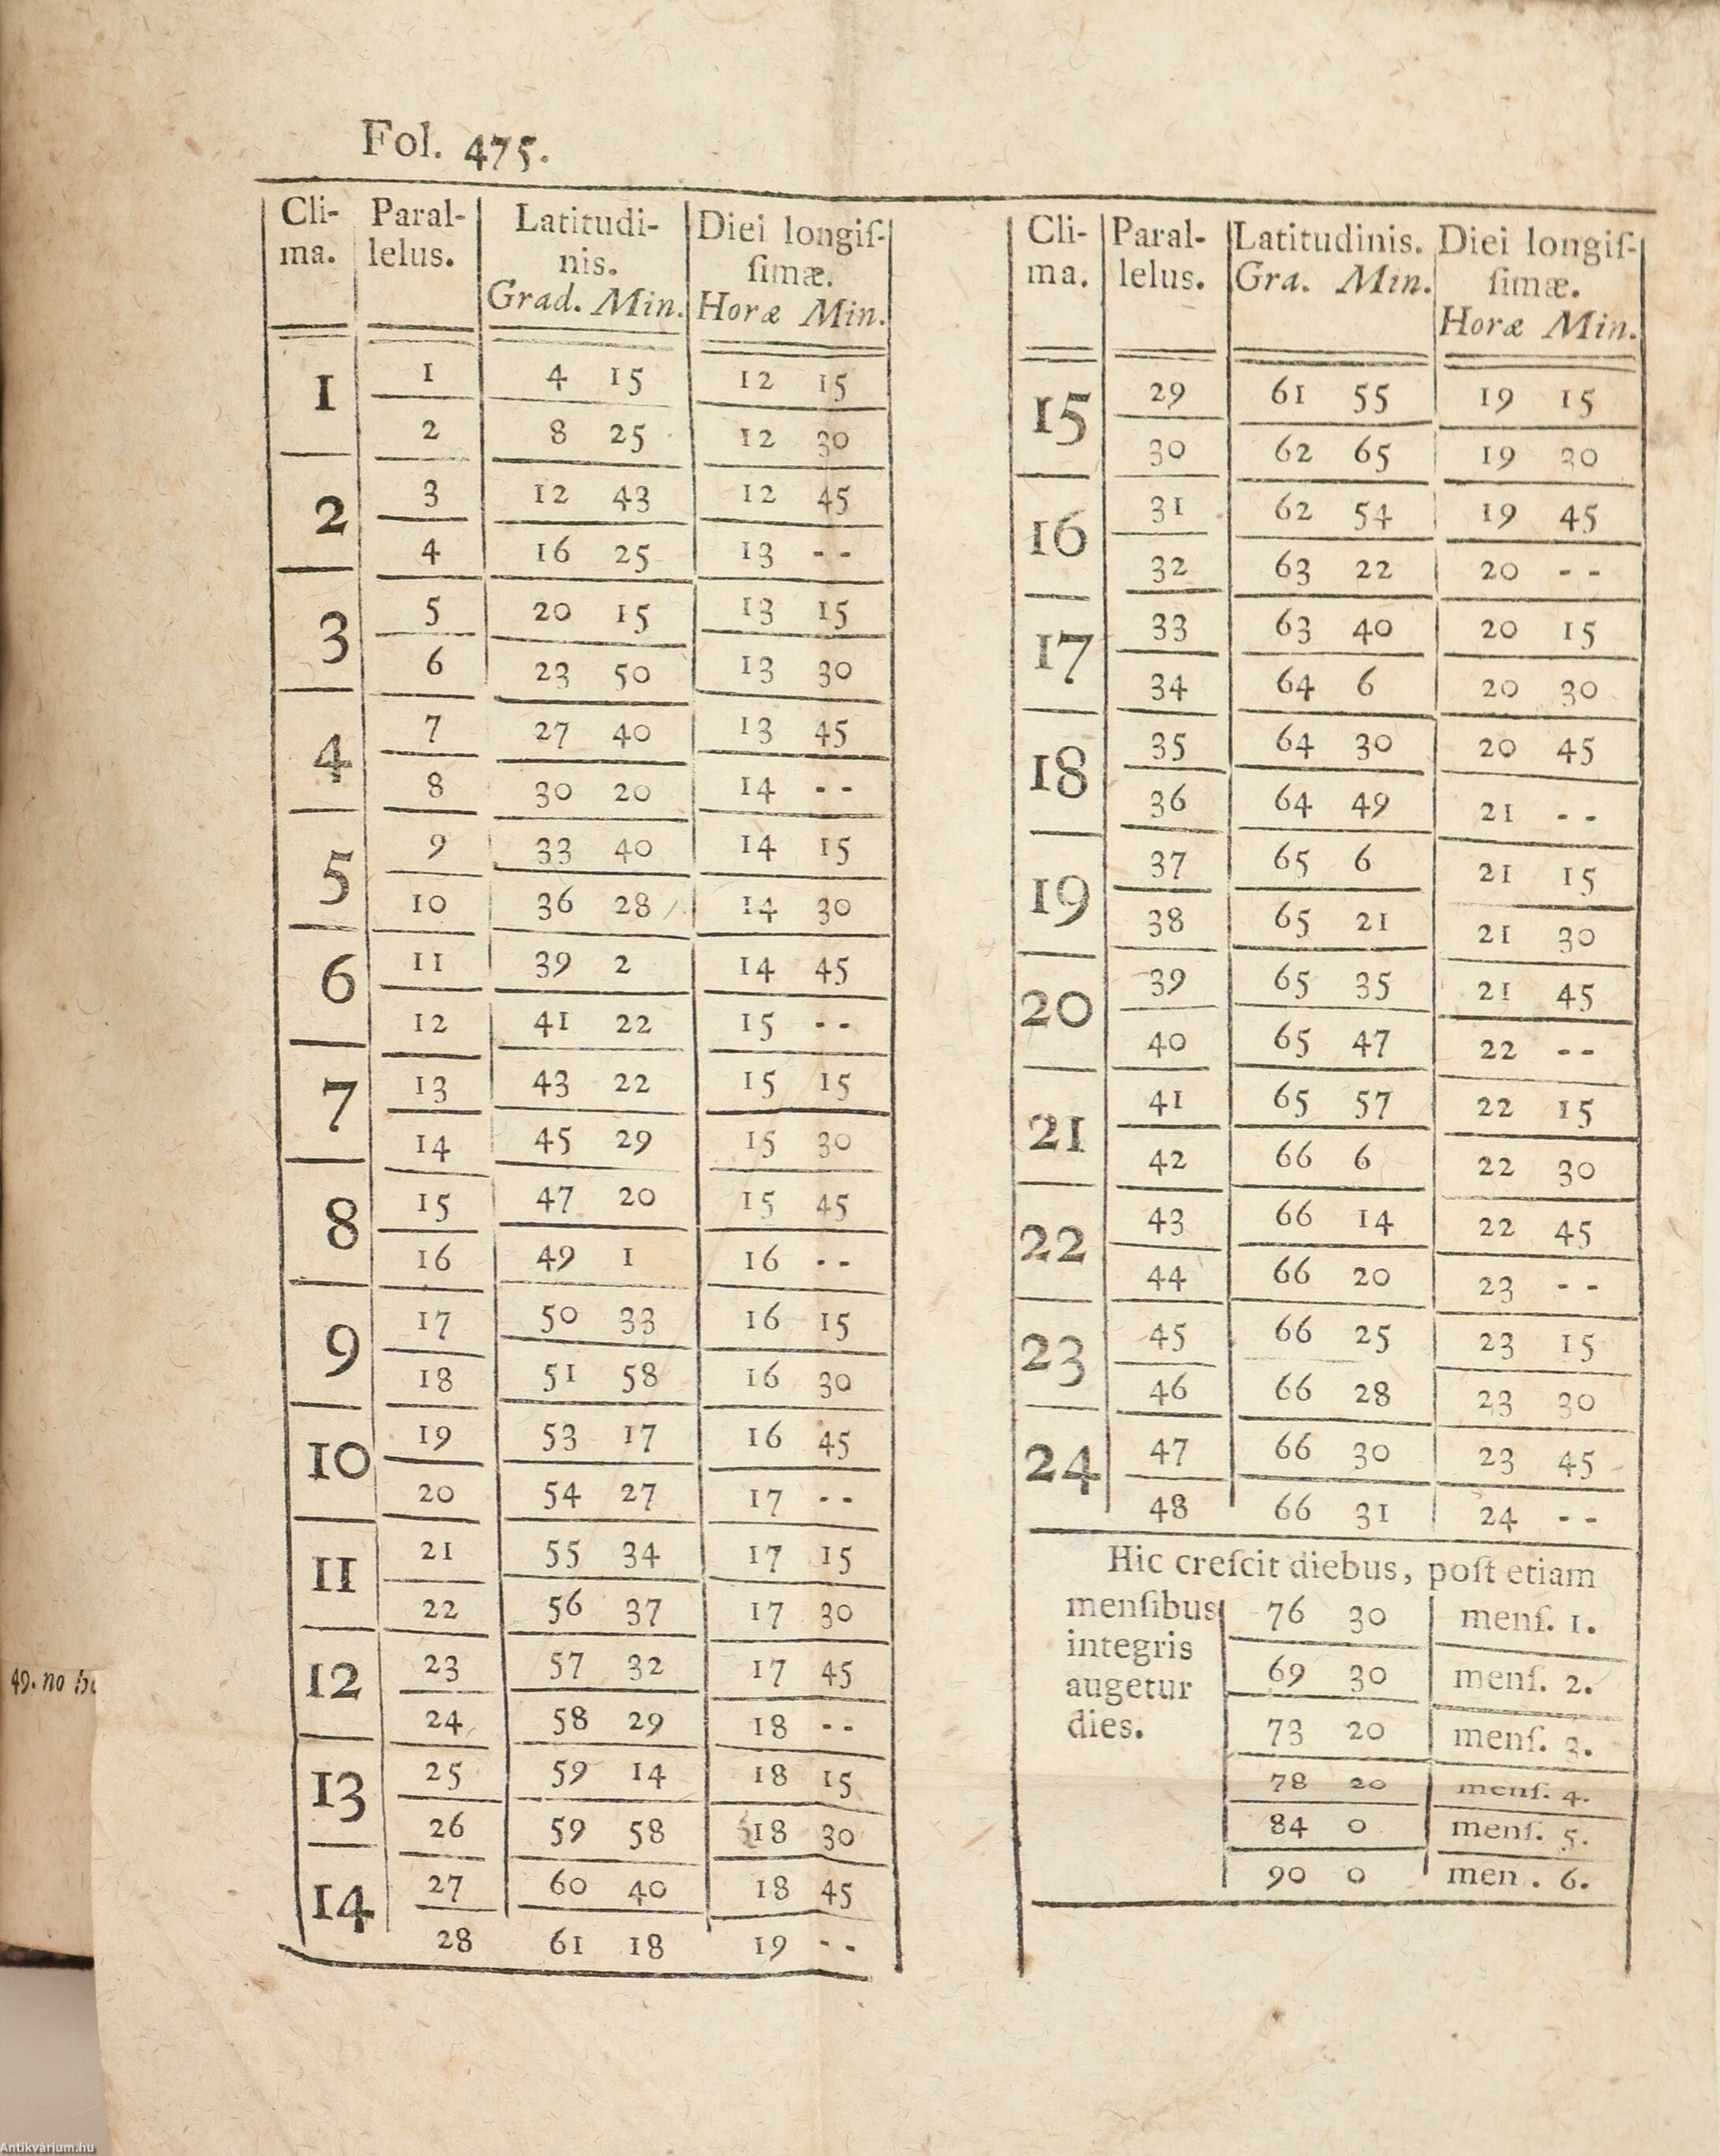 Fol. 475.
Cli- Paral- Latitudi- Diei longiſ-
ma. lelus. nis. ſimæ.
Grad. Min. Horæ Min.
1 1 4 15 12 15
2 8 25 12 30
2 3 12 43 12 45
4 16 25 13 - -
3 5 20 15 13 15
6 23 50 13 30
4 7 27 40 13 45
8 30 20 14 - -
5 9 33 40 14 15
10 36 28 14 30
6 11 39 2 14 45
12 41 22 15 - -
7 13 43 22 15 15
14 45 29 15 30
8 15 47 20 15 45
16 49 1 16 - -
9 17 50 33 16 15
18 51 58 16 30
10 19 53 17 16 45
20 54 27 17 - -
11 21 55 34 17 15
22 56 37 17 30
12 23 57 32 17 45
24 58 29 18 - -
13 25 59 14 18 15
26 59 58 18 30
14 27 60 40 18 45
28 61 18 19 - -
Cli- Paral- Latitudinis. Diei longiſ-
ma. lelus. Gra. Min. ſimæ.
Horæ Min.
15 29 61 55 19 15
30 62 65 19 30
16 31 62 54 19 45
32 63 22 20 - -
17 33 63 40 20 15
34 64 6 20 30
18 35 64 30 20 45
36 64 49 21 - -
19 37 65 6 21 15
38 65 21 21 30
20 39 65 35 21 45
40 65 47 22 - -
21 41 65 57 22 15
42 66 6 22 30
22 43 66 14 22 45
44 66 20 23 - -
23 45 66 25 23 15
46 66 28 23 30
24 47 66 30 23 45
48 66 31 24 - -
Hic creſcit diebus, poſt etiam
menſibus 76 30 menſ. 1.
integris
augetur 69 30 menſ. 2.
dies. 73 20 menſ. 3.
78 20 menſ. 4.
84 0 menſ. 5.
90 0 men . 6.
49. no
Antikvárium.hu